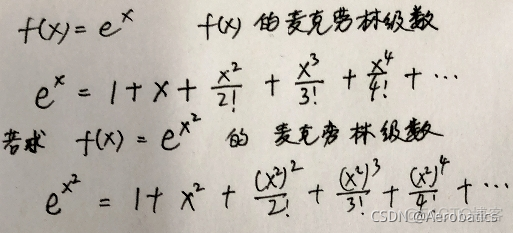 f(x) = e^x f(x) 的麦克劳林级数
e^x = 1 + x + x^2/2! + x^3/3! + x^4/4! + ⋯
若求 f(x) = e^{x^2} 的 麦克劳林级数
e^{x^2} = 1 + x^2 + (x^2)^2/2! + (x^2)^3/3! + (x^2)^4/4! + ⋯
CSDN @Aerobatics